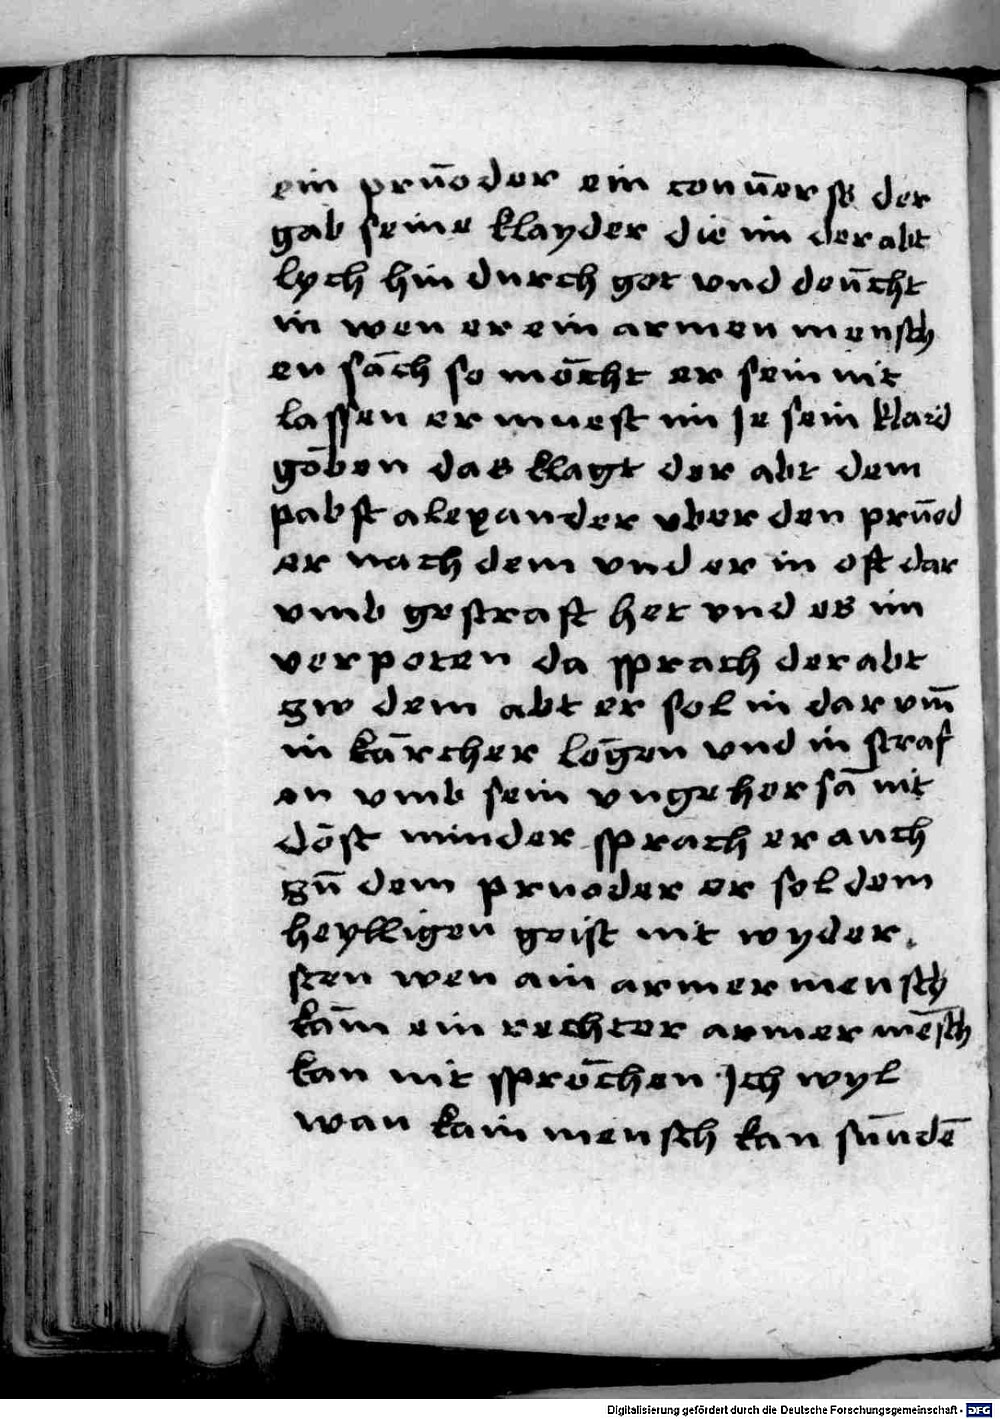 ein prūoder ein conūers der
gab seine klayder die im der abt
lych hin durch got vnd deūcht
in wen er ein armen mensch
en sāch so mōcht er sein nit
lassen er muest im Je sein klaid
gōben das klagt der abt dem
pabst alexander vber den prūod
er nach dem vnd er in oft dar
vmb gestraft het vnd es im
verpoten da sprach der abt
gw dem abt er sol in dar vm̄
in kārcher lōgen vnd in straf
en vmb sein vngehorsā nit
dōst minder sprach er auch
gū dem pruoder er sol dem
heylligen geist nit wyder
sten wen ain armer mensch
kām ein rechter armer mēsch
kan nit sprōchen Jch wyl
wan kain mensch kan sūndē
Digitalisierung gefördert durch die Deutsche Forschungsgemeinschaft - DFG